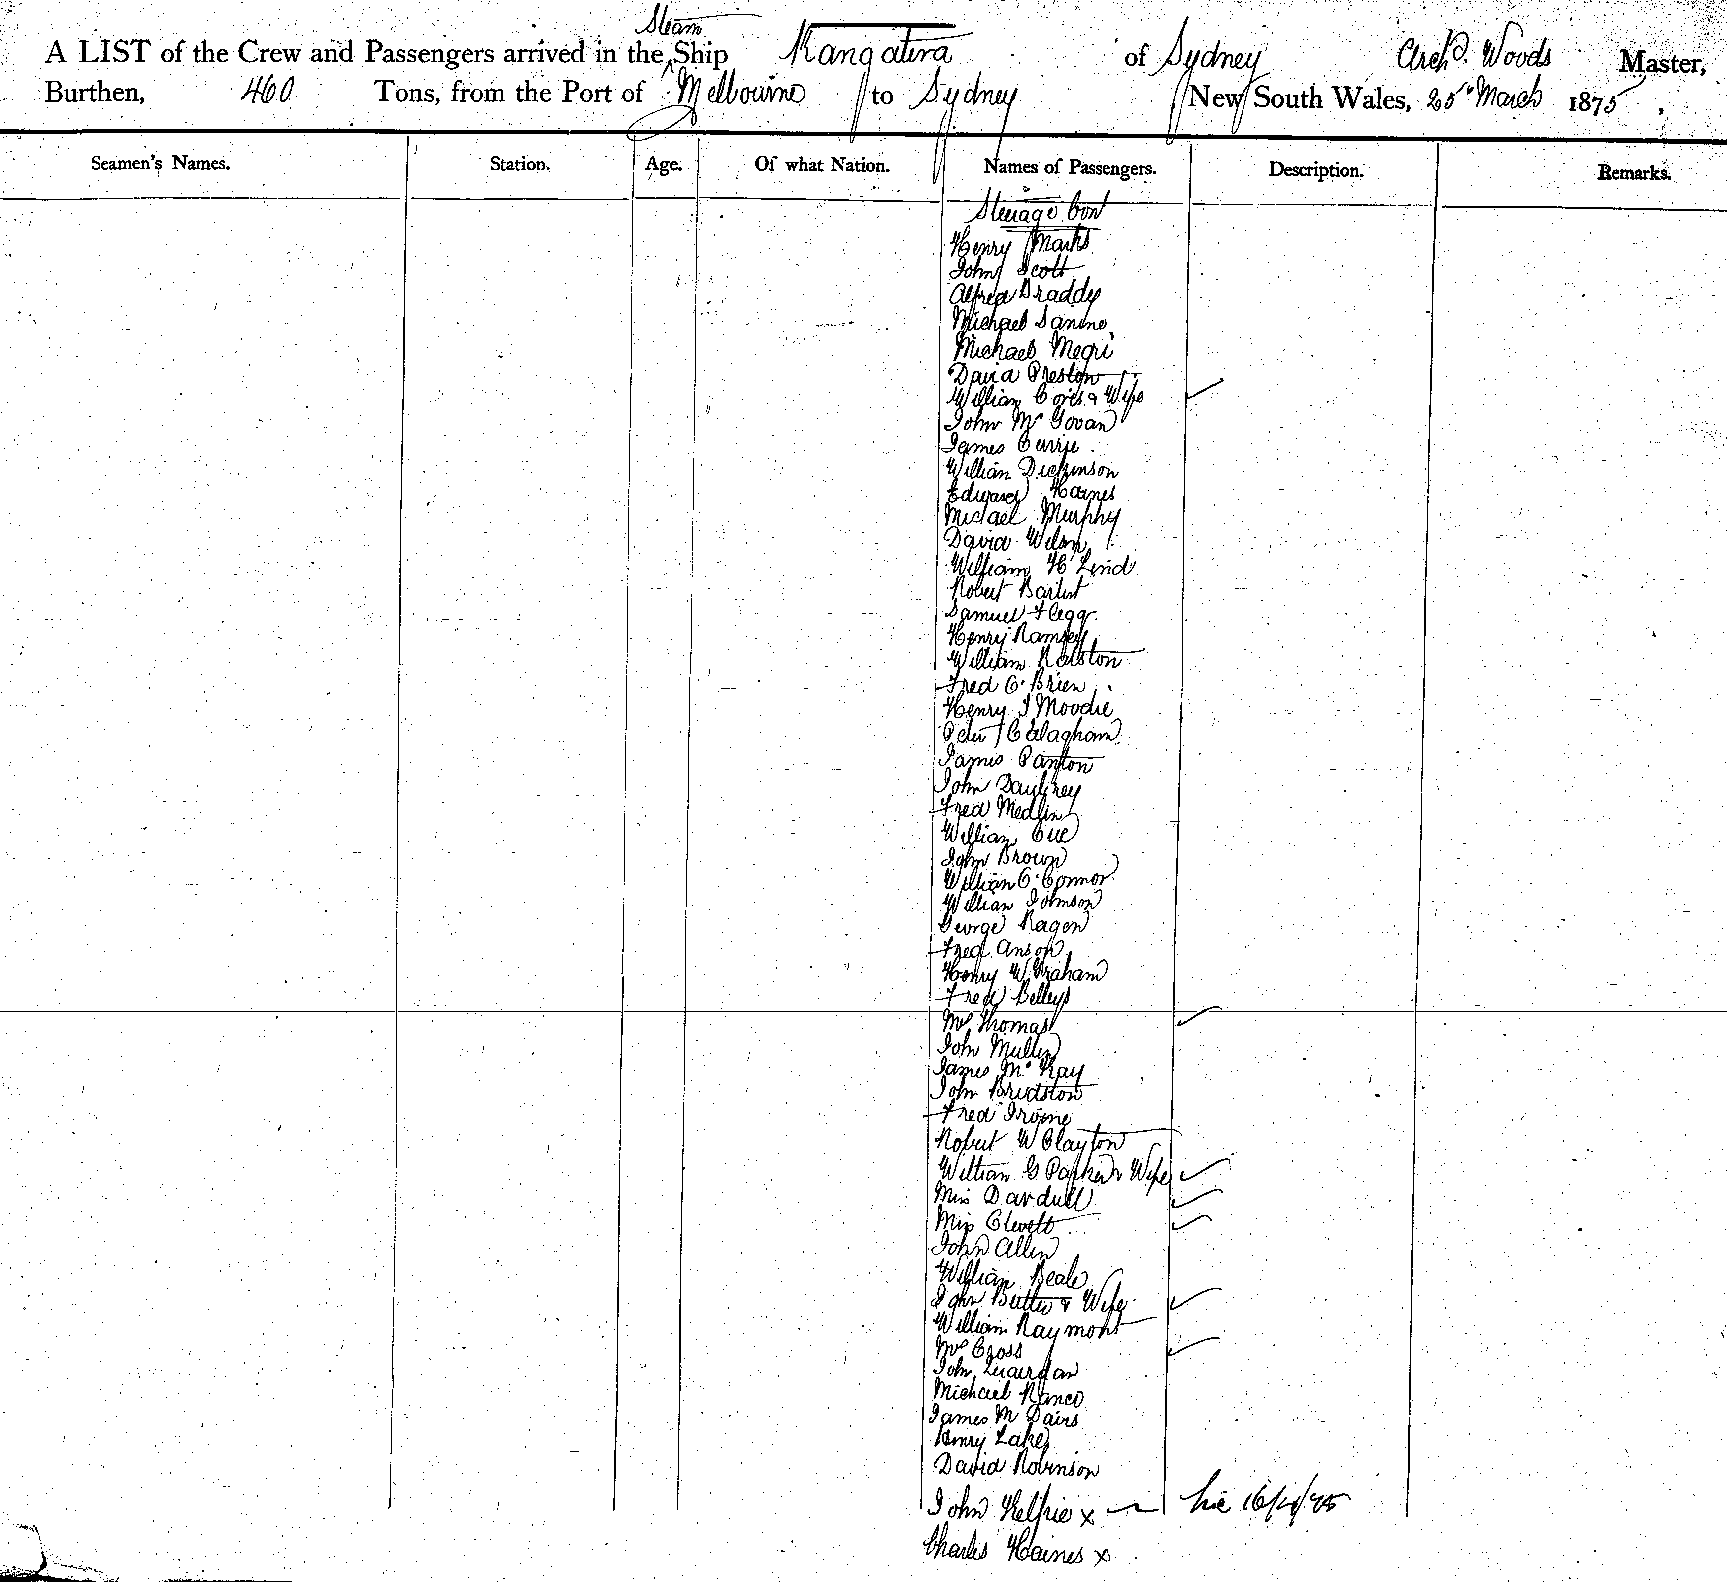 Steam
A LIST of the Crew and Passengers arrived in the Ship Kangatira of Sydney Archd. Woods Master,
Burthen, 460 Tons, from the Port of Melbourne to Sydney New South Wales, 25th March 1875.
Seamen's Names. Station. Age. Of what Nation. Names of Passengers. Description. Remarks.
Steerage Cont
Henry Marks
John Scott
Alfred Braddy
Michael
Michael Megri
David Preston
William & Wife
John Mc Govan
James Currie
William Dickinson
Edward Haines
Michael Murphy
David Wilson
William H Lind
Robert Bartist
Samuel Flegg
Henry Ramsey
William Ralston
Fred O'Brien
Henry J Moodie
Peter Calaghan
James Panton
John Daughrey
Fred Medlin
William Cue
John Brown
William O'Connor
William Johnson
George Ragen
Fred Anson
Henry W Graham
Fred Belleys
Mrs Thomas
John Mullin
James Mc Kay
John Bridston
Fred Irvine
Robert W Clayton
William G Parker & Wife
Miss Dardull
Miss Clevett
John Allen
William Beale
John Butler & Wife
William Raymont
Mrs Cross
John
Michael Rance
James M Dairs
Henry Lake
David Robinson
John Kelpie x 16/4/75
Charles Haines x